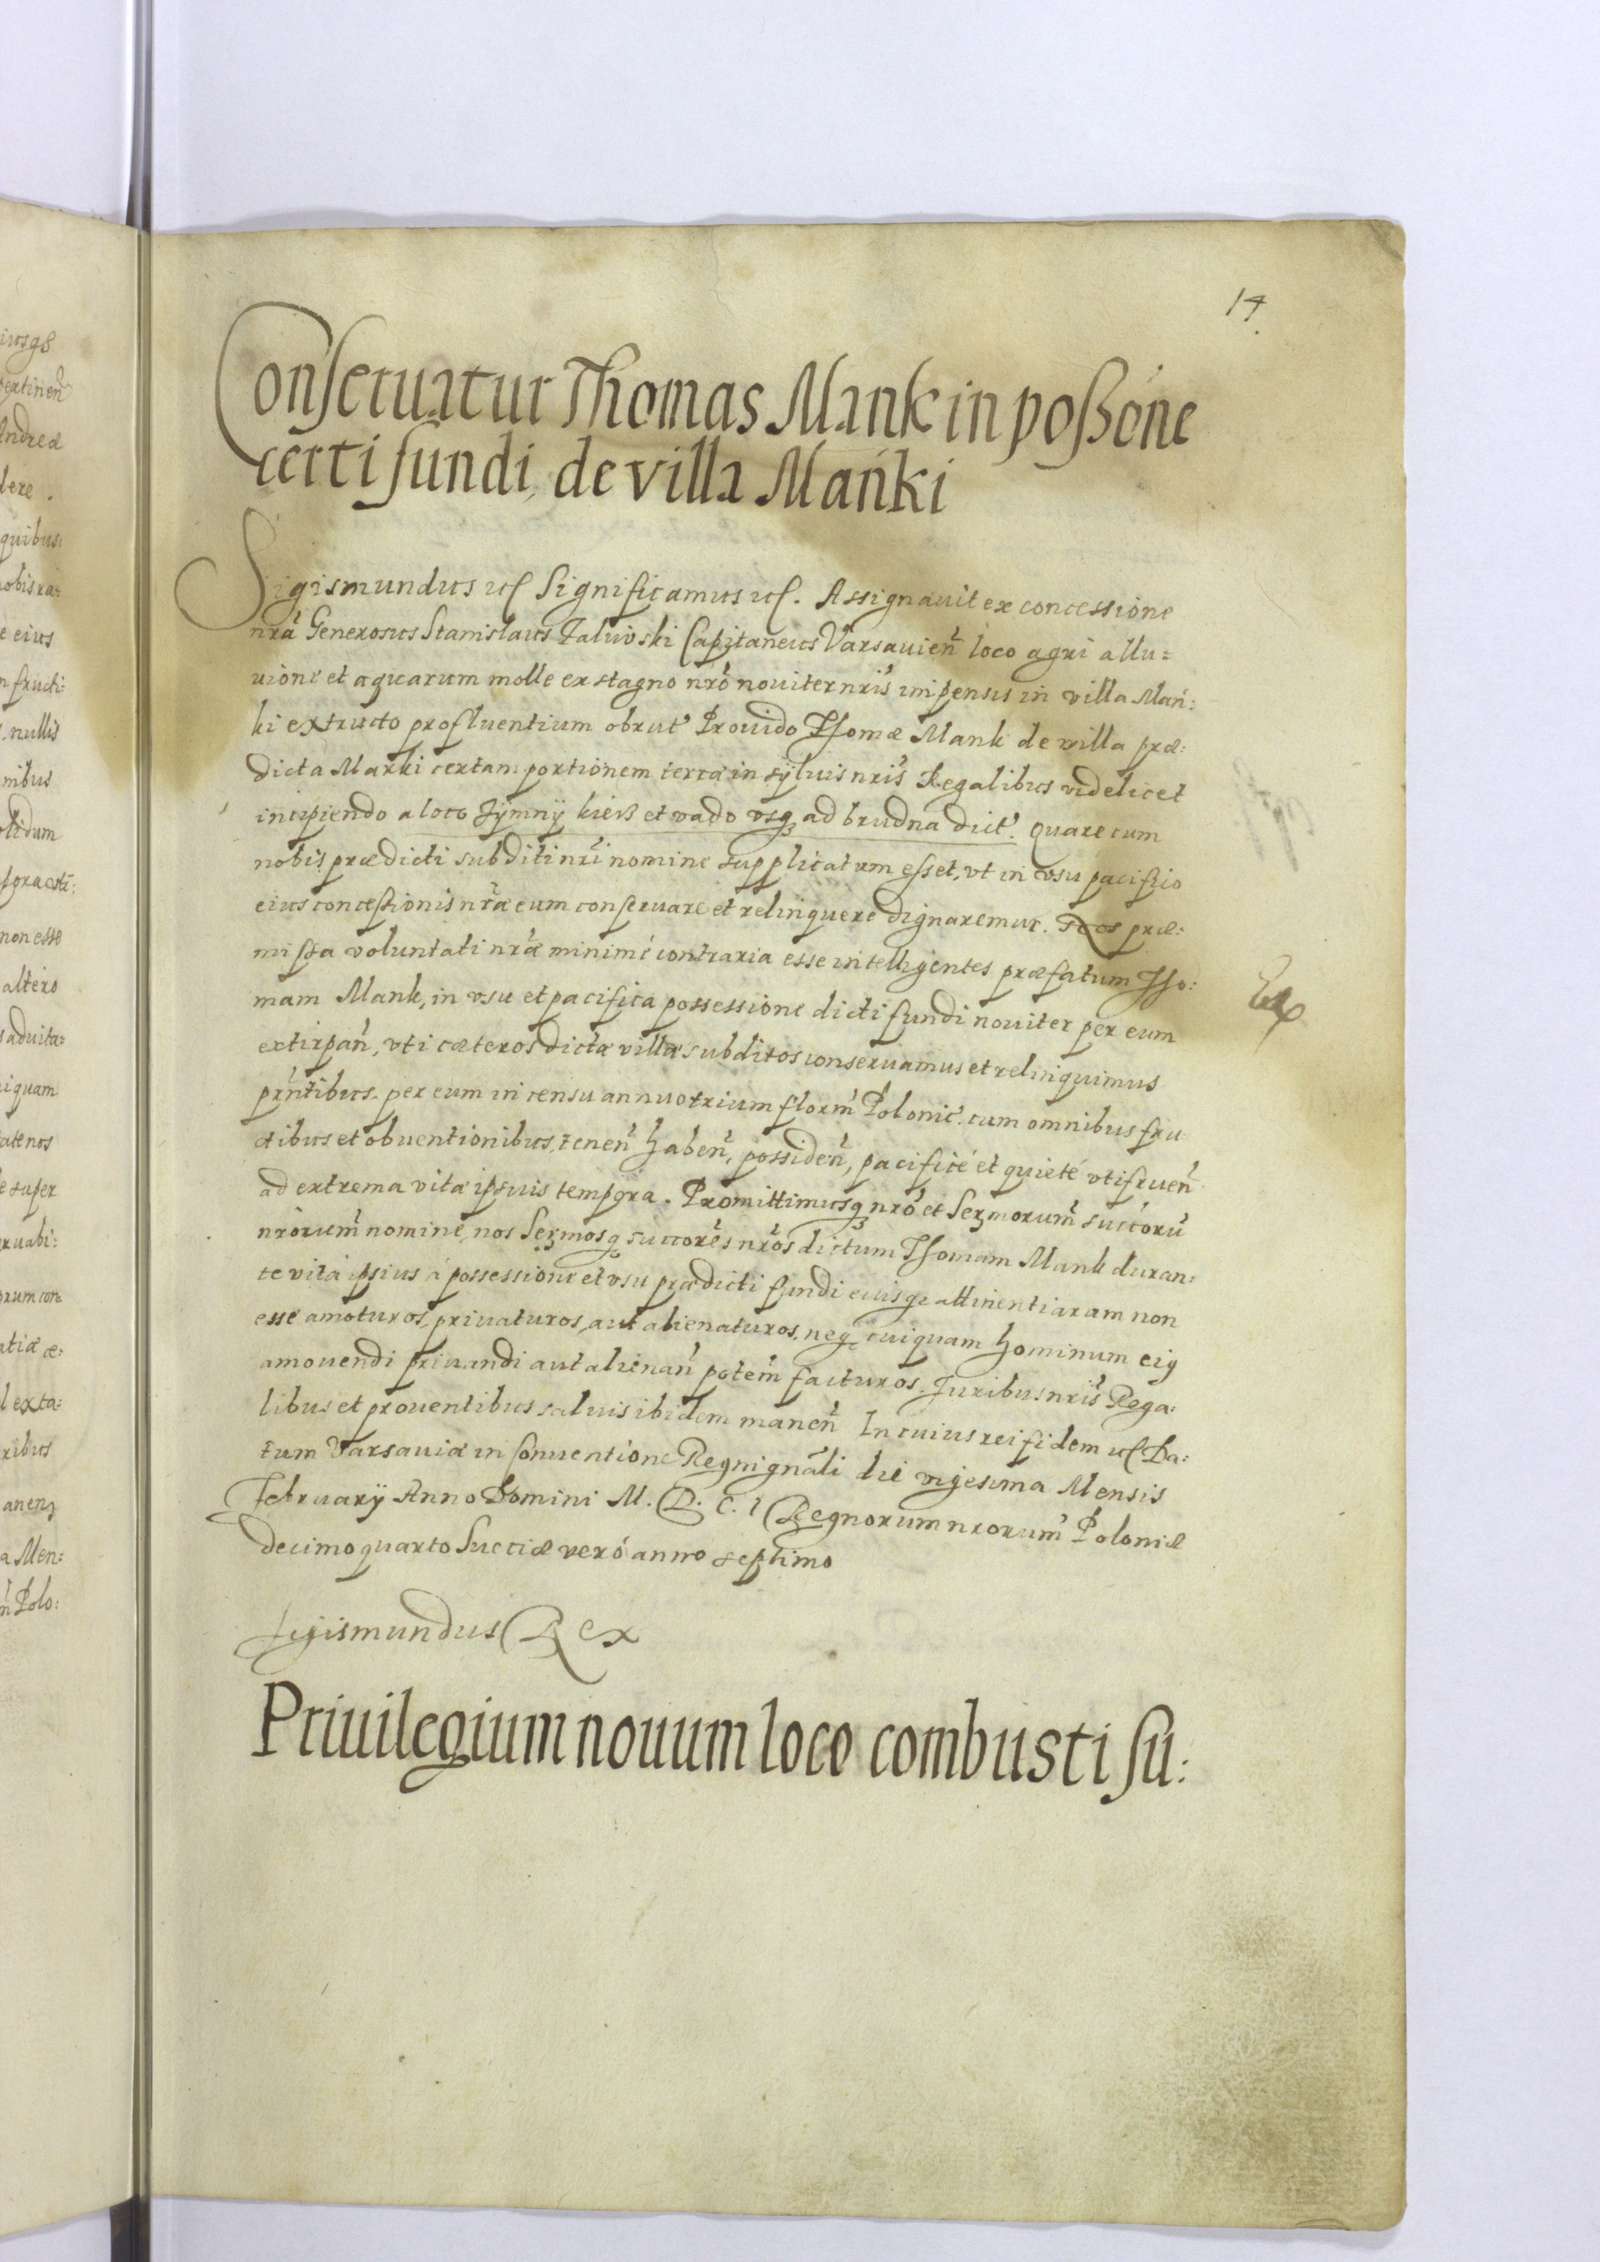 14
Conseruatur Thomas Mank in possóne
certi fundi, de villa Mańki
Sigismundus etc Significamus etc. Assignauit ex concessione
nrã Generosus Stanislaus Zaliwski Capitaneus Varsauień loco agri allu:
uione et aquarum molle ex stagno nrõ nouiter nrĩs impensis in villa Mań:
ki extructo profluentium obrut Prouido Thomæ Mank de villa præ:
dicta Manki certam portionem terræ in syluis nrĩs Regalibus videlicet
incipiendo a loco Zÿmnÿ kierß et vado vsq ad brudna dict. Quare cum
nobis prædicti subditi nrĩ nomine supplicatum esset, vt in vsu pacifico
eius concessionis nræ eum conseruare et relinquere dignaremur. Nos præ:
missa voluntati nræ minimé contraria esse intelligentes præfatum Tho:
mam Mank, in vsu et pacifica possessione dicti fundi nouiter per eum
extirpań, vti cæteros dictæ villæ subditos conseruamus et relinquimus
prñtibus. per eum in censu annuo trium florm̃ Polonic. cum omnibus fru
ctibus et obuentionibus, teneñ habeñ, possideñ, pacificé et quieté vtifrueñ
ad extrema vitæ ipsuis tempora. Promittimusq nrõ et Sermorum succorũ
nrõrum nomine, nos Sermosq succorẽs nrõs dictum Thomam Mank duran:
te vita ipsius á possessione et vsu prædicti fundi eiusq attinentiaram non
esse amoturos, priuaturos, aut alienaturos, neq cuiquam hominum eig
amouendi priuandi aut alienañ potem̃ facturos. Juribus nrĩs Rega:
libus et prouentibus saluis ibidem maneñ In cuius rei fidem etc Da:
tum Varsauiæ in Conuentione Regni gnãli die vigesima Mensis
Februarÿ Anno Domini M. D. C. I Regnorum nrorum Poloniæ
decimoquarto Sueciæ veró anno septimo
Sigismundus Rex
Priuilegium nouum loco combusti su: